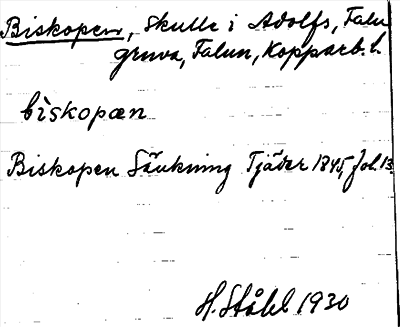 Biskopen, Skulle i Adolfs, Falu
gruva, Falun, Kopparb. l.
bìskopæn
Biskopen Sänkning Tjäder 1845, fol. 13.
H. Ståhl 1930